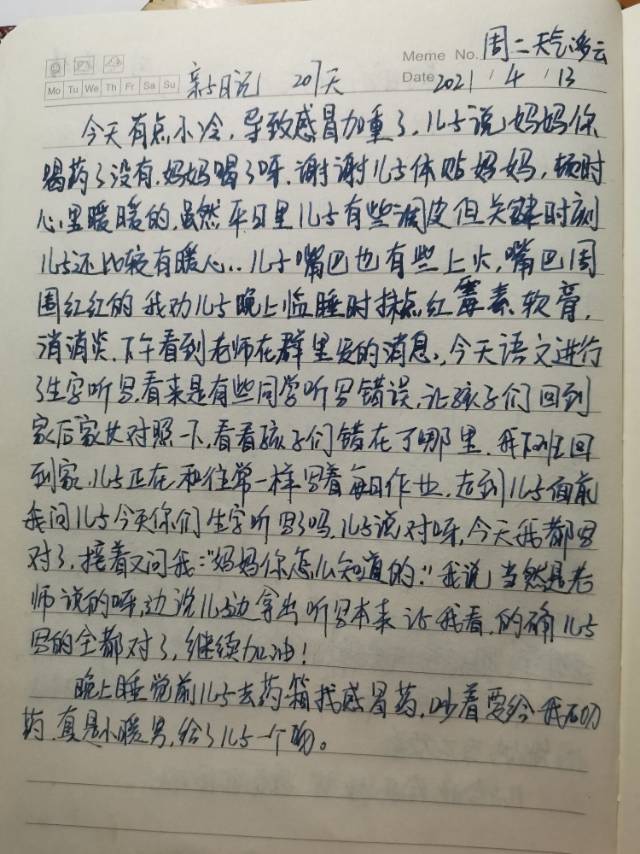 Meme No. 周二天气多云
Mo Tu We Th Fr Sa Su
亲子日记 207天 Date 2021 / 4 / 13
今天有点小冷，导致感冒加重了，儿子说妈妈你
喝药了没有，妈妈喝了呀，谢谢儿子体贴妈妈，顿时
心里暖暖的，虽然平日里儿子有些调皮但关键时刻
儿子还比较有暖心..儿子嘴巴也有些上火，嘴巴周
围红红的我劝儿子晚上临睡时抹点红霉素软膏，
消消炎.下午看到老师在群里发的消息，今天语文进行
了生字听写，看来是有些同学听写错误，让孩子们回到
家后家长对照一下，看看孩子们错在了哪里.我下班回
到家，儿子正在和往常一样写着每日作业.走到儿子面前
我问儿子今天你们生字听写了吗，儿子说对呀，今天我都写
对了，接着又问我："妈妈你怎么知道的."我说当然是老
师说的呀，边说儿子边拿出听写本来让我看，的确儿子
写的全都对了，继续加油！
晚上睡觉前儿子去药箱找感冒药，吵着要给我
药，真是小暖男，给了儿子一个吻。